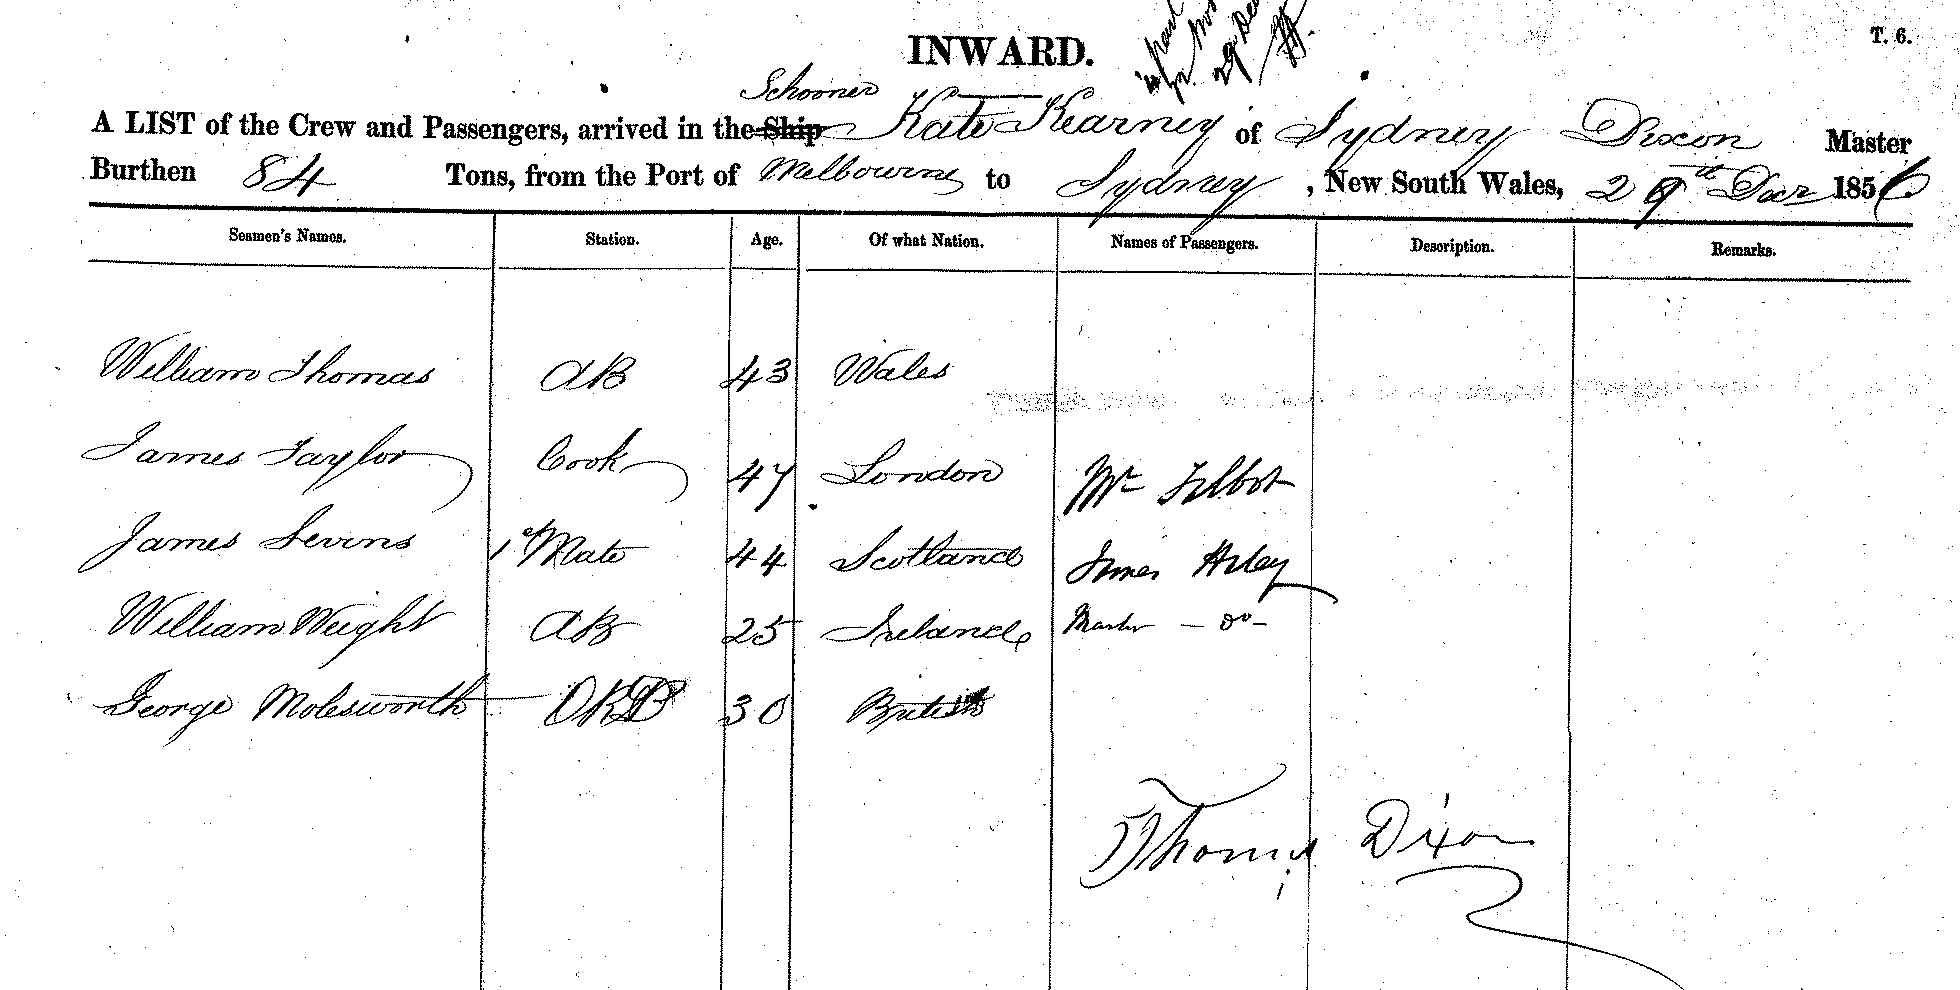 INWARD.
T. 6.
29 Dec
Schooner
A LIST of the Crew and Passengers, arrived in the Ship Kate Kearney of Sydney Dixon Master
Burthen 84 Tons, from the Port of Melbourne to Sydney, New South Wales, 29th Decr 1856
Seamen's Names. Station. Age. Of what Nation. Names of Passengers. Description. Remarks.
William Thomas AB 43 Wales
James Taylor Cook 47 London Mr Talbot
James Sevins 1st Mate 44 Scotland James
William Weight AB 25 Ireland Master - do -
George Molesworth 30 British
Thomas Dixon